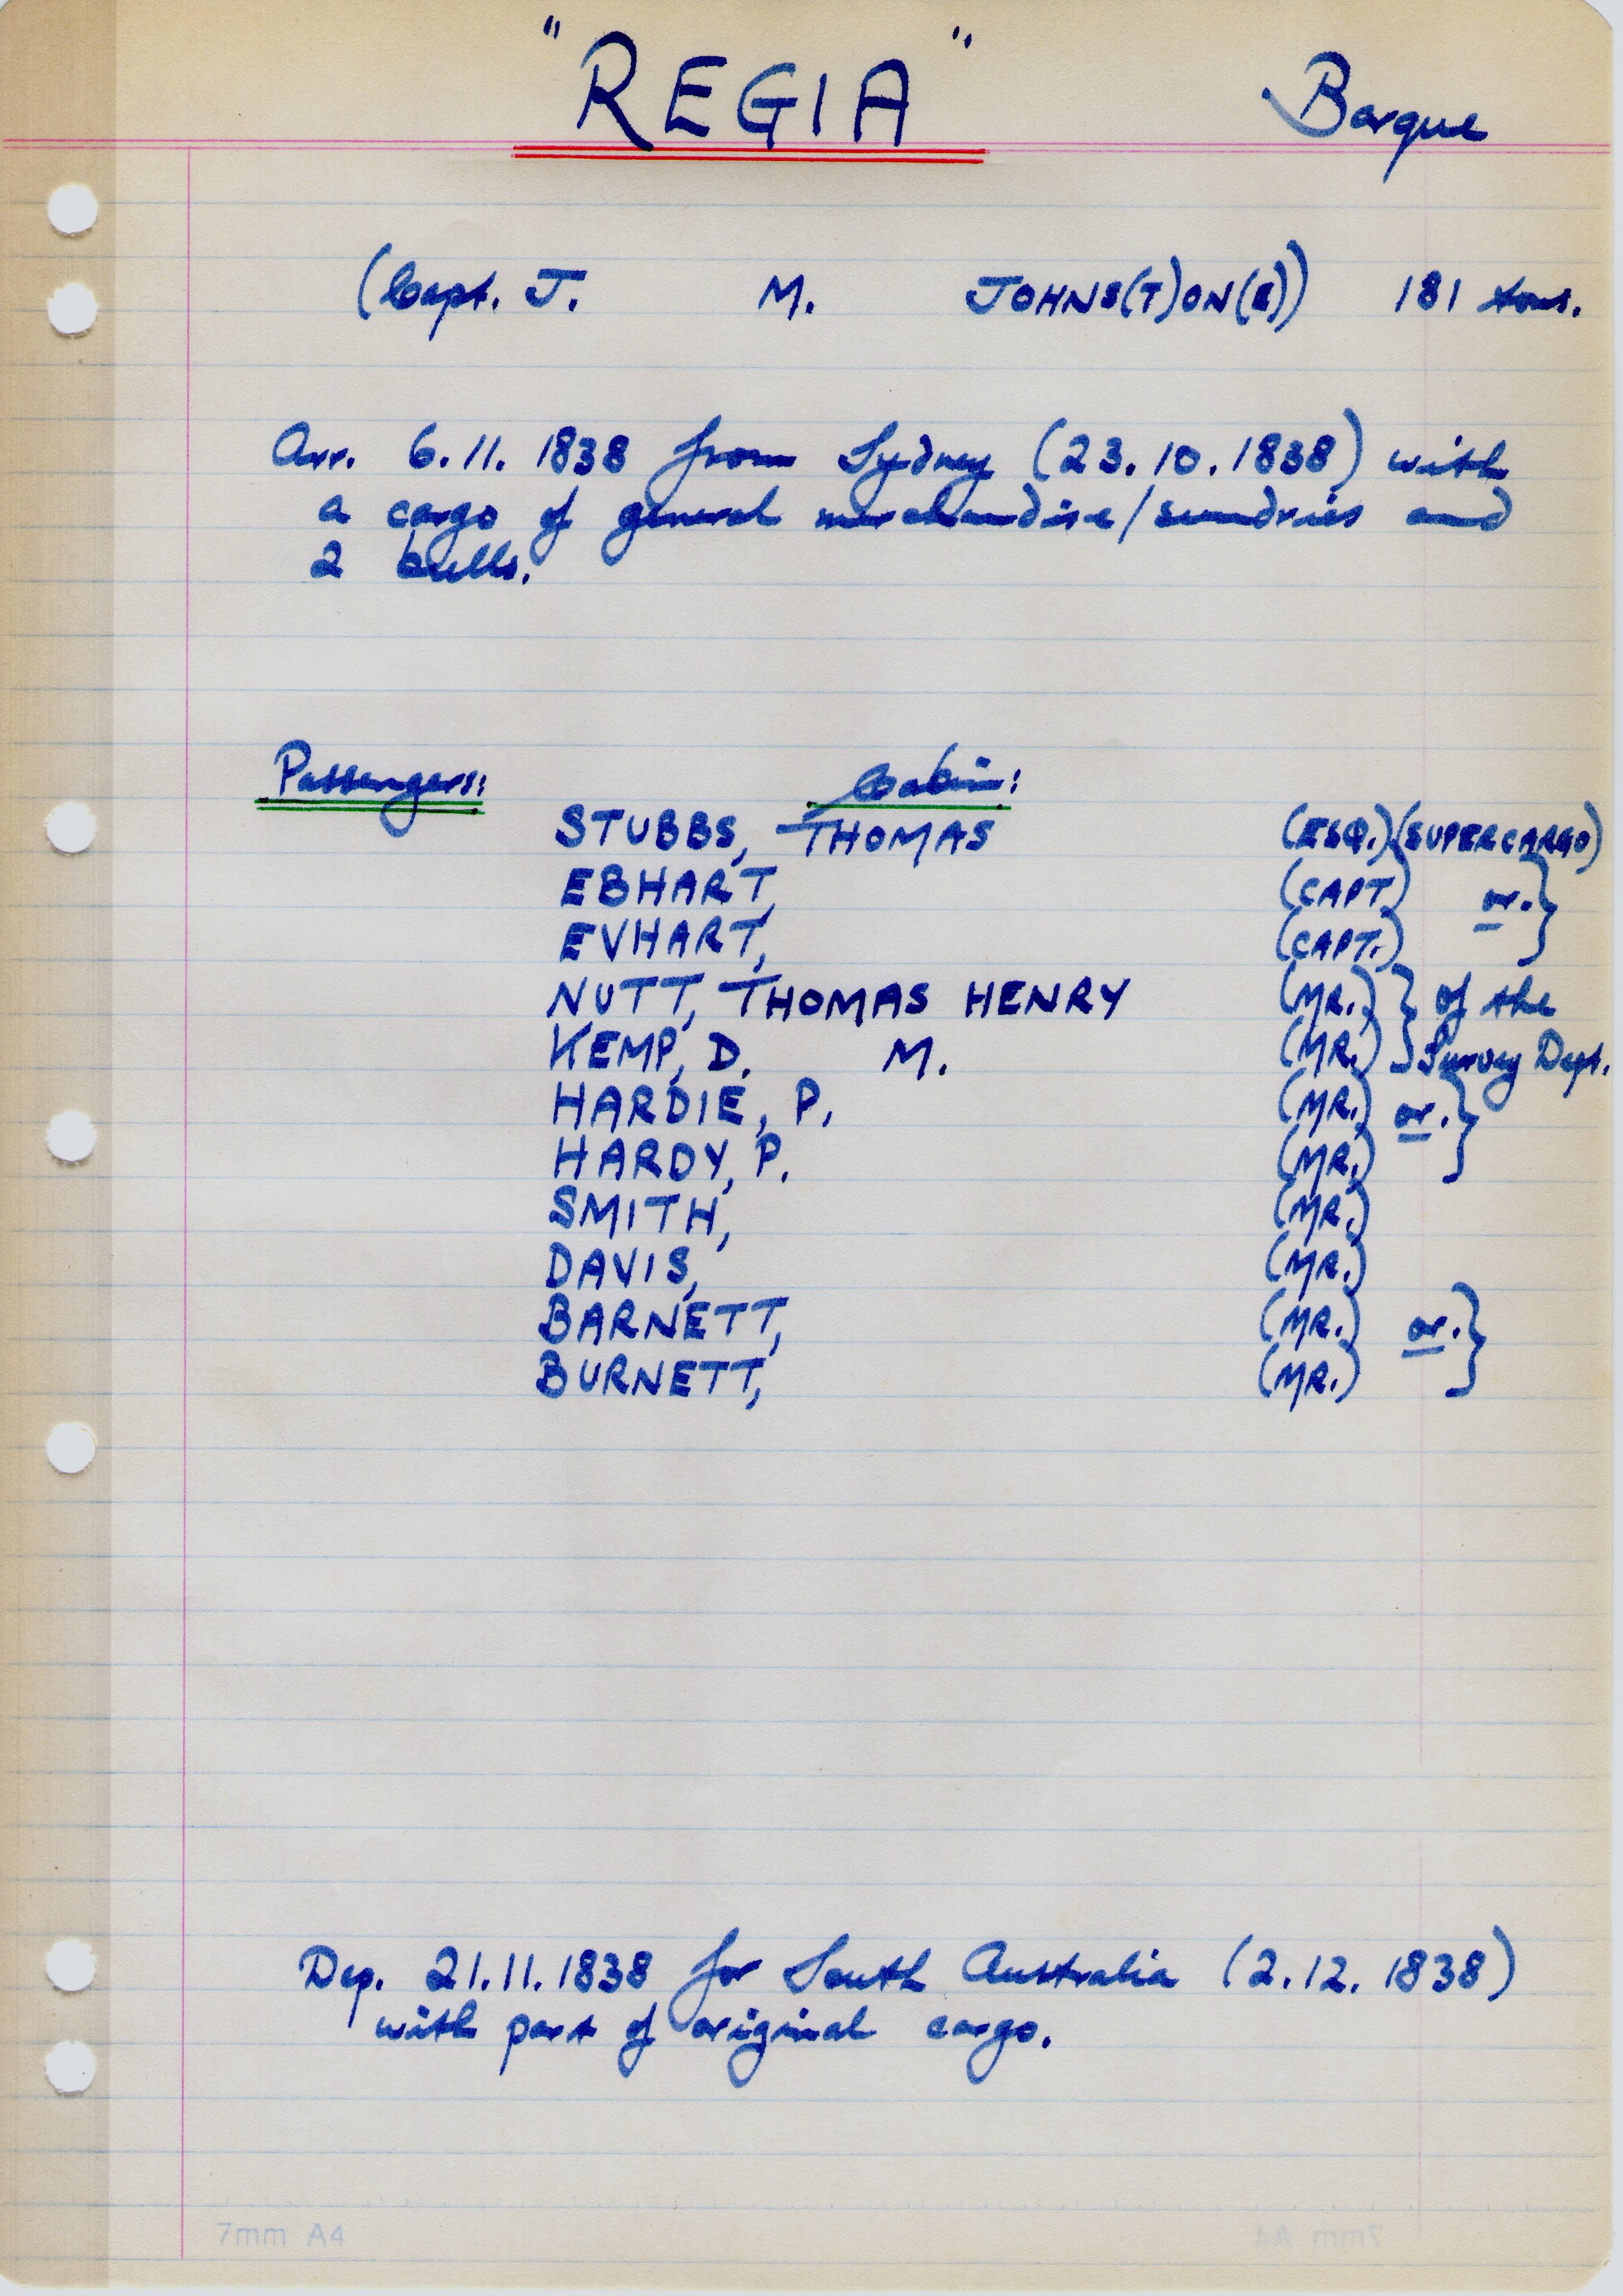 "REGIA" Barque
(Capt. J. M. JOHNS(T)ON(E)) 181 tons.
Arr. 6.11. 1838 from Sydney (23.10.1838) with
a cargo of general merchandise/sundries and
2 bulls.
Passengers: Cabin:
STUBBS, THOMAS (ESQ.)(SUPERCARGO)
EBHART, (CAPT) or. }
EVHART, (CAPT.)
NUTT, THOMAS HENRY (MR.) } of the
KEMP, D. M. (MR.) Survey Dept.
HARDIE, P. (MR.) or. }
HARDY, P. (MR.)
SMITH, (MR.)
DAVIS, (MR.)
BARNETT, (MR.) or. }
BURNETT, (MR.)
Dep. 21.11.1838 for South Australia (2.12.1838)
with part of original cargo.
7mm A4